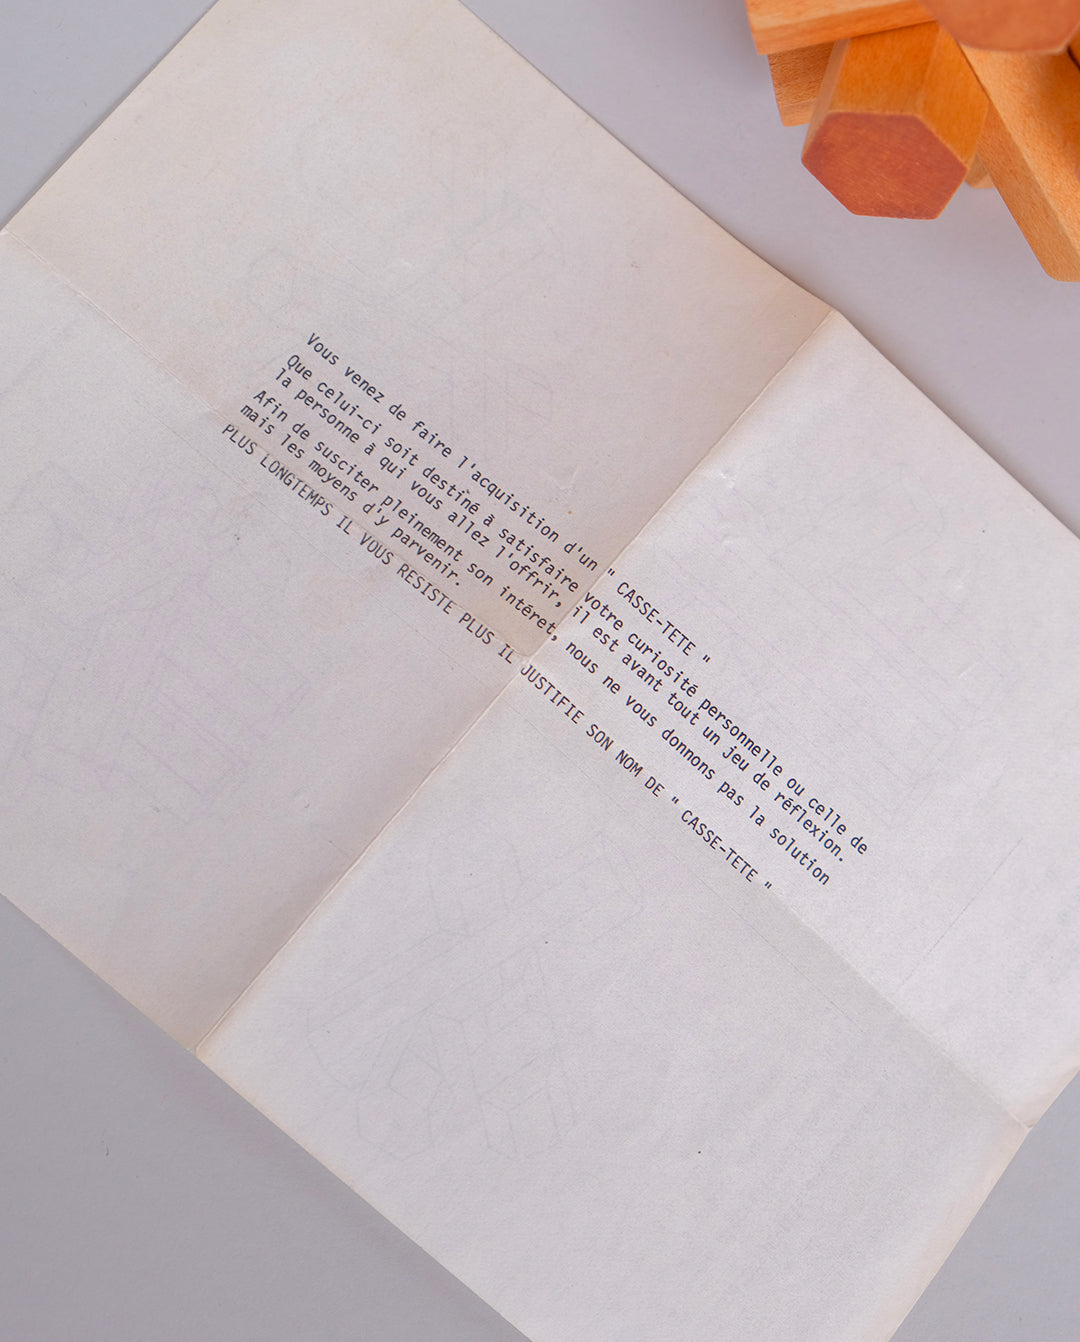 Vous venez de faire l'acquisition d'un " CASSE-TETE "
Que celui-ci soit destiné à satisfaire votre curiosité personnelle ou celle de
la personne à qui vous allez l'offrir, il est avant tout un jeu de réflexion.
Afin de susciter pleinement son intéret, nous ne vous donnons pas la solution
mais les moyens d'y parvenir.
PLUS LONGTEMPS IL VOUS RESISTE PLUS IL JUSTIFIE SON NOM DE " CASSE-TETE "